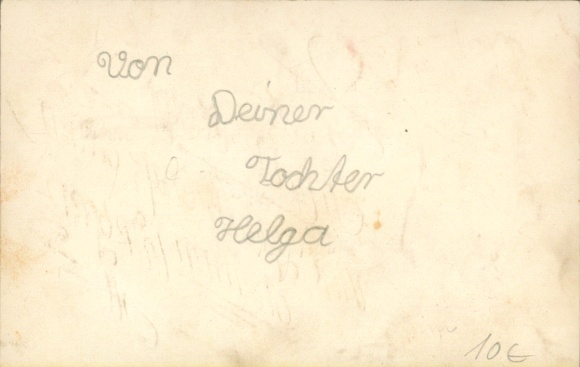 Von
Deiner
Tochter
Helga
10€